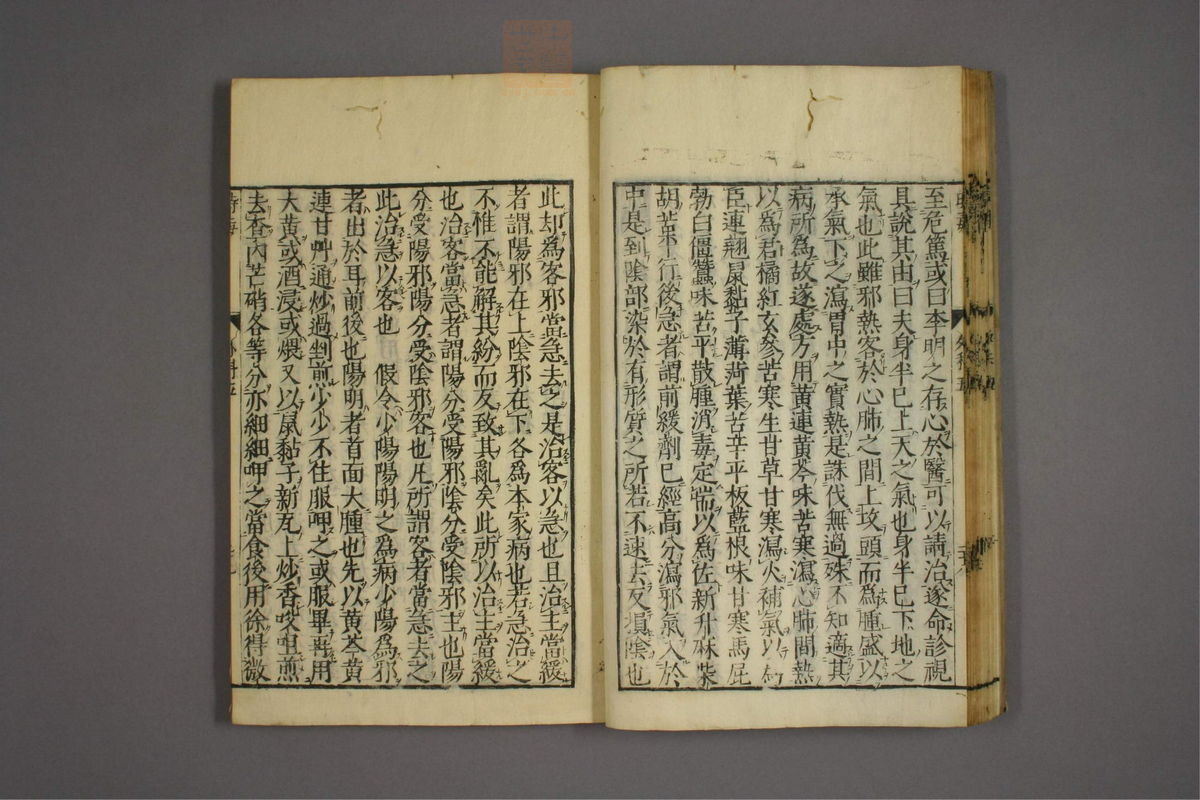 至危篤或曰李明之存心於醫可以請治遂命診視
具說其由曰夫身半已上天之氣也身半已下地之
氣也此雖邪熱客於心肺之間上攻頭而爲腫盛以
承氣下之瀉胃中之實熱是誅伐無過殊不知適其
病所爲故遂處方用黃連黃芩味苦寒瀉心肺間熱
以爲君橘紅玄參苦寒生甘草甘寒瀉火補氣以
臣連翹鼠黏子薄荷葉苦辛平板藍根味甘寒馬屁
勃白僵蠶味苦平散腫消毒定喘以爲佐新升麻柴
胡苦平行後急者謂前緩劑已經高分瀉邪氣入於
中是到陰部染於有形質之所若不速去反損陰也
此却爲客邪當急去之是治客以急也且治主當緩
者謂陽邪在上陰邪在下各爲本家病也若急治之
不惟不能解其紛而反致其亂矣此所以治主當緩
也治客當急者謂陽分受陽邪陰分受陰邪主也陽
分受陽邪陽分受陰邪客也凡所謂客者當急去之
此治急以客也 假令少陽陽明之爲病少陽爲邪
者出於耳前後也陽明者首面大腫也先以黃芩黃
連甘艸通炒過剉煎少少不住服呷之或服畢再用
大黃或酒浸或煨又以鼠黏子新瓦上炒香㕮咀煎
去查內芒硝各等分亦細細呷之當食後用徐得微